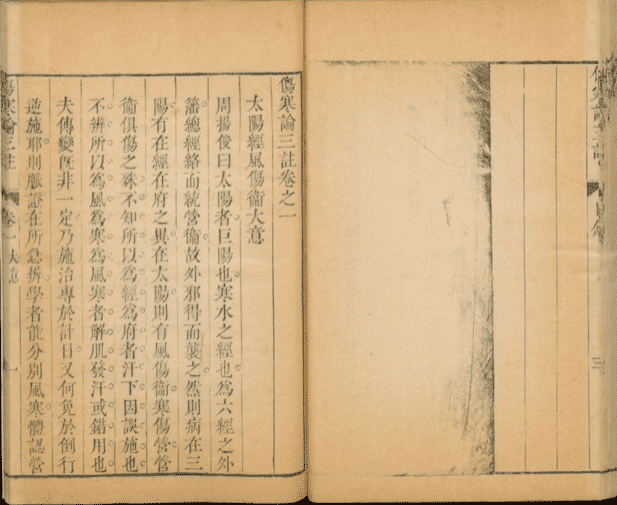 傷寒論三註
傷寒論三註卷之一
太陽經風傷衞大意
周揚俊曰太陽者巨陽也寒水之經也爲六經之外
藩總經絡而統營衞故外邪得而襲之然則病在三
陽有在經在府之異在太陽則有風傷衞寒傷營營
衞俱傷之殊不知所以爲經爲府者汗下因誤施也
不辨所以爲風爲寒爲風寒者解肌發汗或錯用也
夫傳變旣非一定乃施治專於計日又何免於倒行
逆施耶則脈證在所急辨學者能分别風寒體認營
傷寒論三註
卷一 大意
一